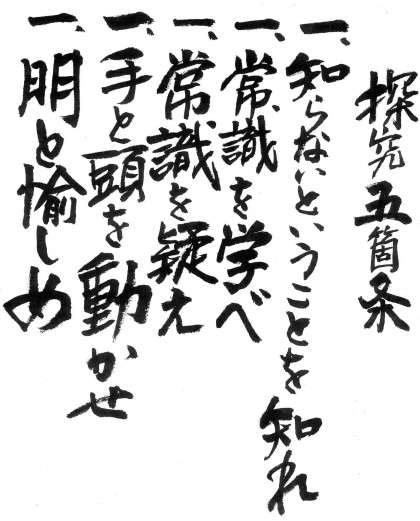 探究五箇条
一、知らないということを知れ
一、常識を学べ
一、常識を疑え
一、手と頭を動かせ
一、明と愉しめ